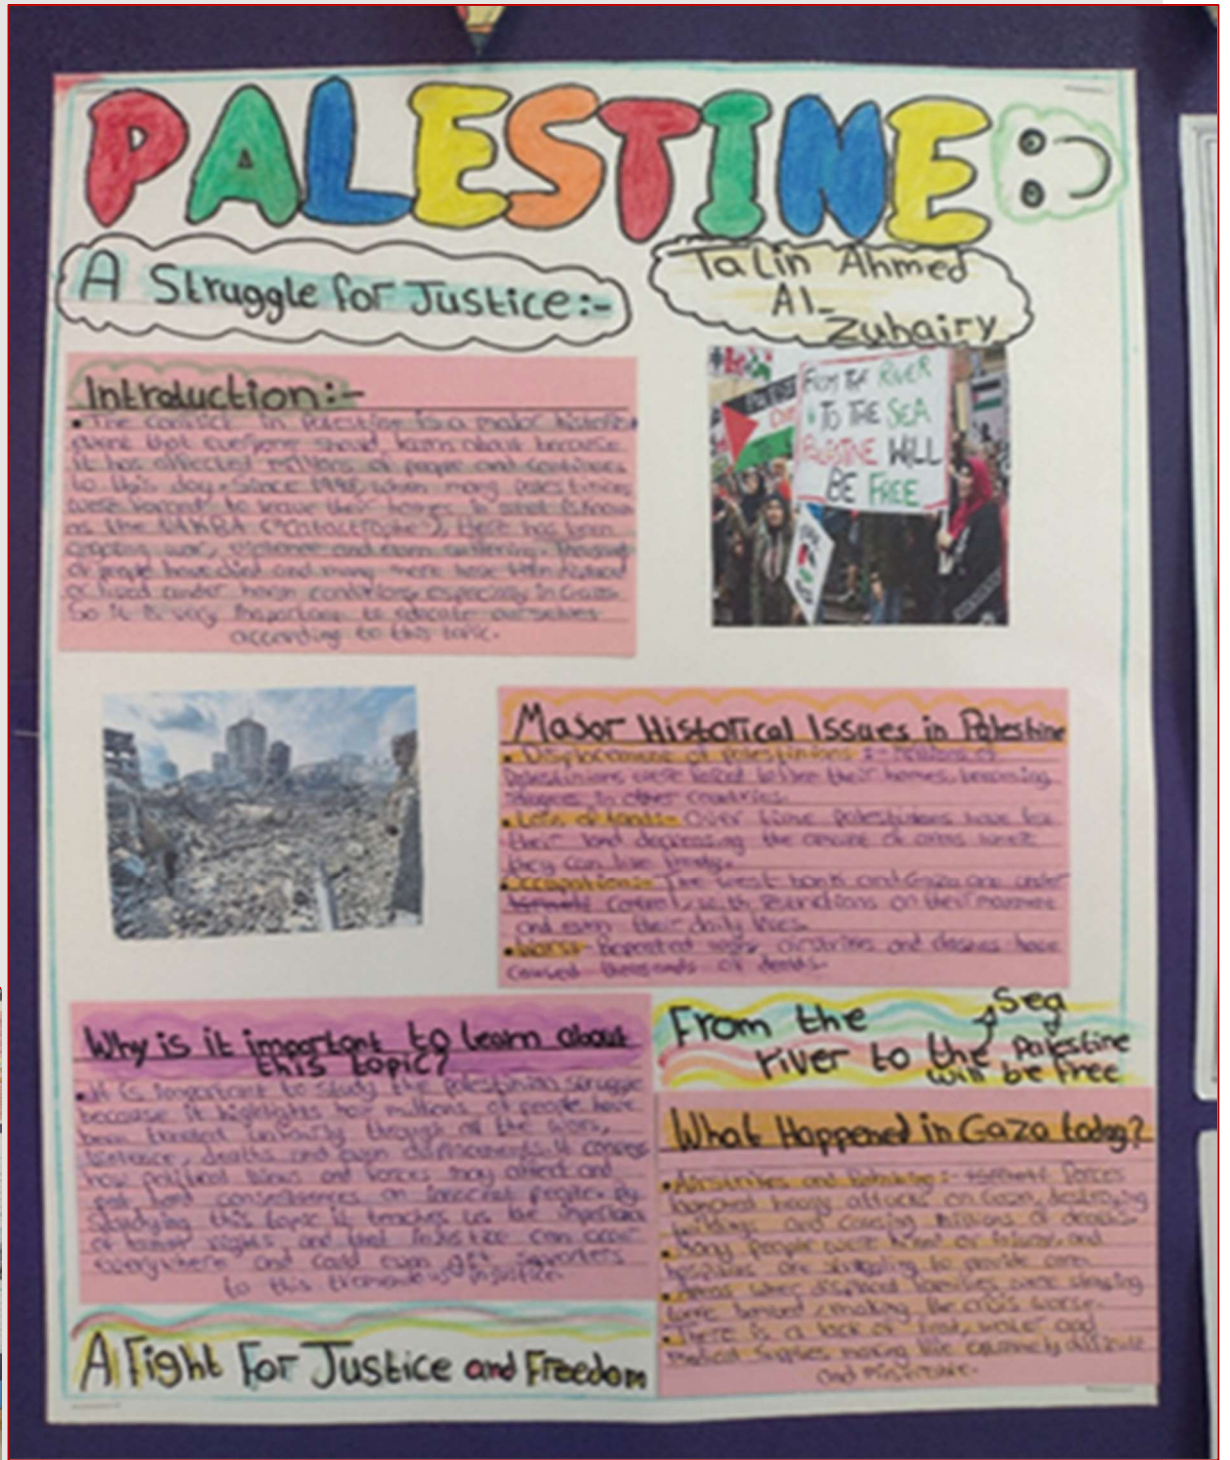 PALESTINE
A Struggle for Justice:-
Talin Ahmed
Al-
Zubairy
Introduction:-
• The conflict in Palestine is a major historic
event that everyone should learn about because
it has affected millions of people and continues
to this day. Since 1948, when many palestinians
were forced to leave their homes in what is known
as the NAKBA ("Catastrophe"), there has been
ongoing war, violence and even suffering.
of people have died and many more have been
or lived under harsh conditions, especially in Gaza.
So it is very important to educate ourselves
according to this topic.
FROM THE RIVER
TO THE SEA
PALESTINE WILL
BE FREE
Major Historical Issues in Palestine
• Displacement of palestinians :- Millions of
palestinians were forced to flee their homes, becoming
refugees in other countries.
• Loss of land:- Over time palestinians have
their land decreasing the amount of areas where
they can live freely.
• Occupation:- The West bank and Gaza are under
control, with restrictions on their movement
and even their daily lives.
• Wars:- Repeated wars, airstrikes and clashes have
caused thousands of deaths.
Why is it important to learn about
this topic?
• It is important to study the palestinian struggle
because it highlights how millions of people have
been treated unfairly through all the wars,
violence, deaths and even displacements. It
how political views and forces may affect and
put hard consequences on innocent people. By
studying this topic it teaches us the
of human rights and that injustice can
everywhere and could even
to this injustice.
From the
river to the Sea
Palestine
will be free
What Happened in Gaza today?
• Airstrikes and :- forces
launched heavy attacks on Gaza, destroying
buildings and causing millions of deaths.
• Many people were and
hospitals are struggling to provide care.
• Areas where displaced families were staying
were bombed, making the crisis worse.
• There is a lack of food, water and
medical supplies making life extremely difficult
and
A Fight For Justice and Freedom